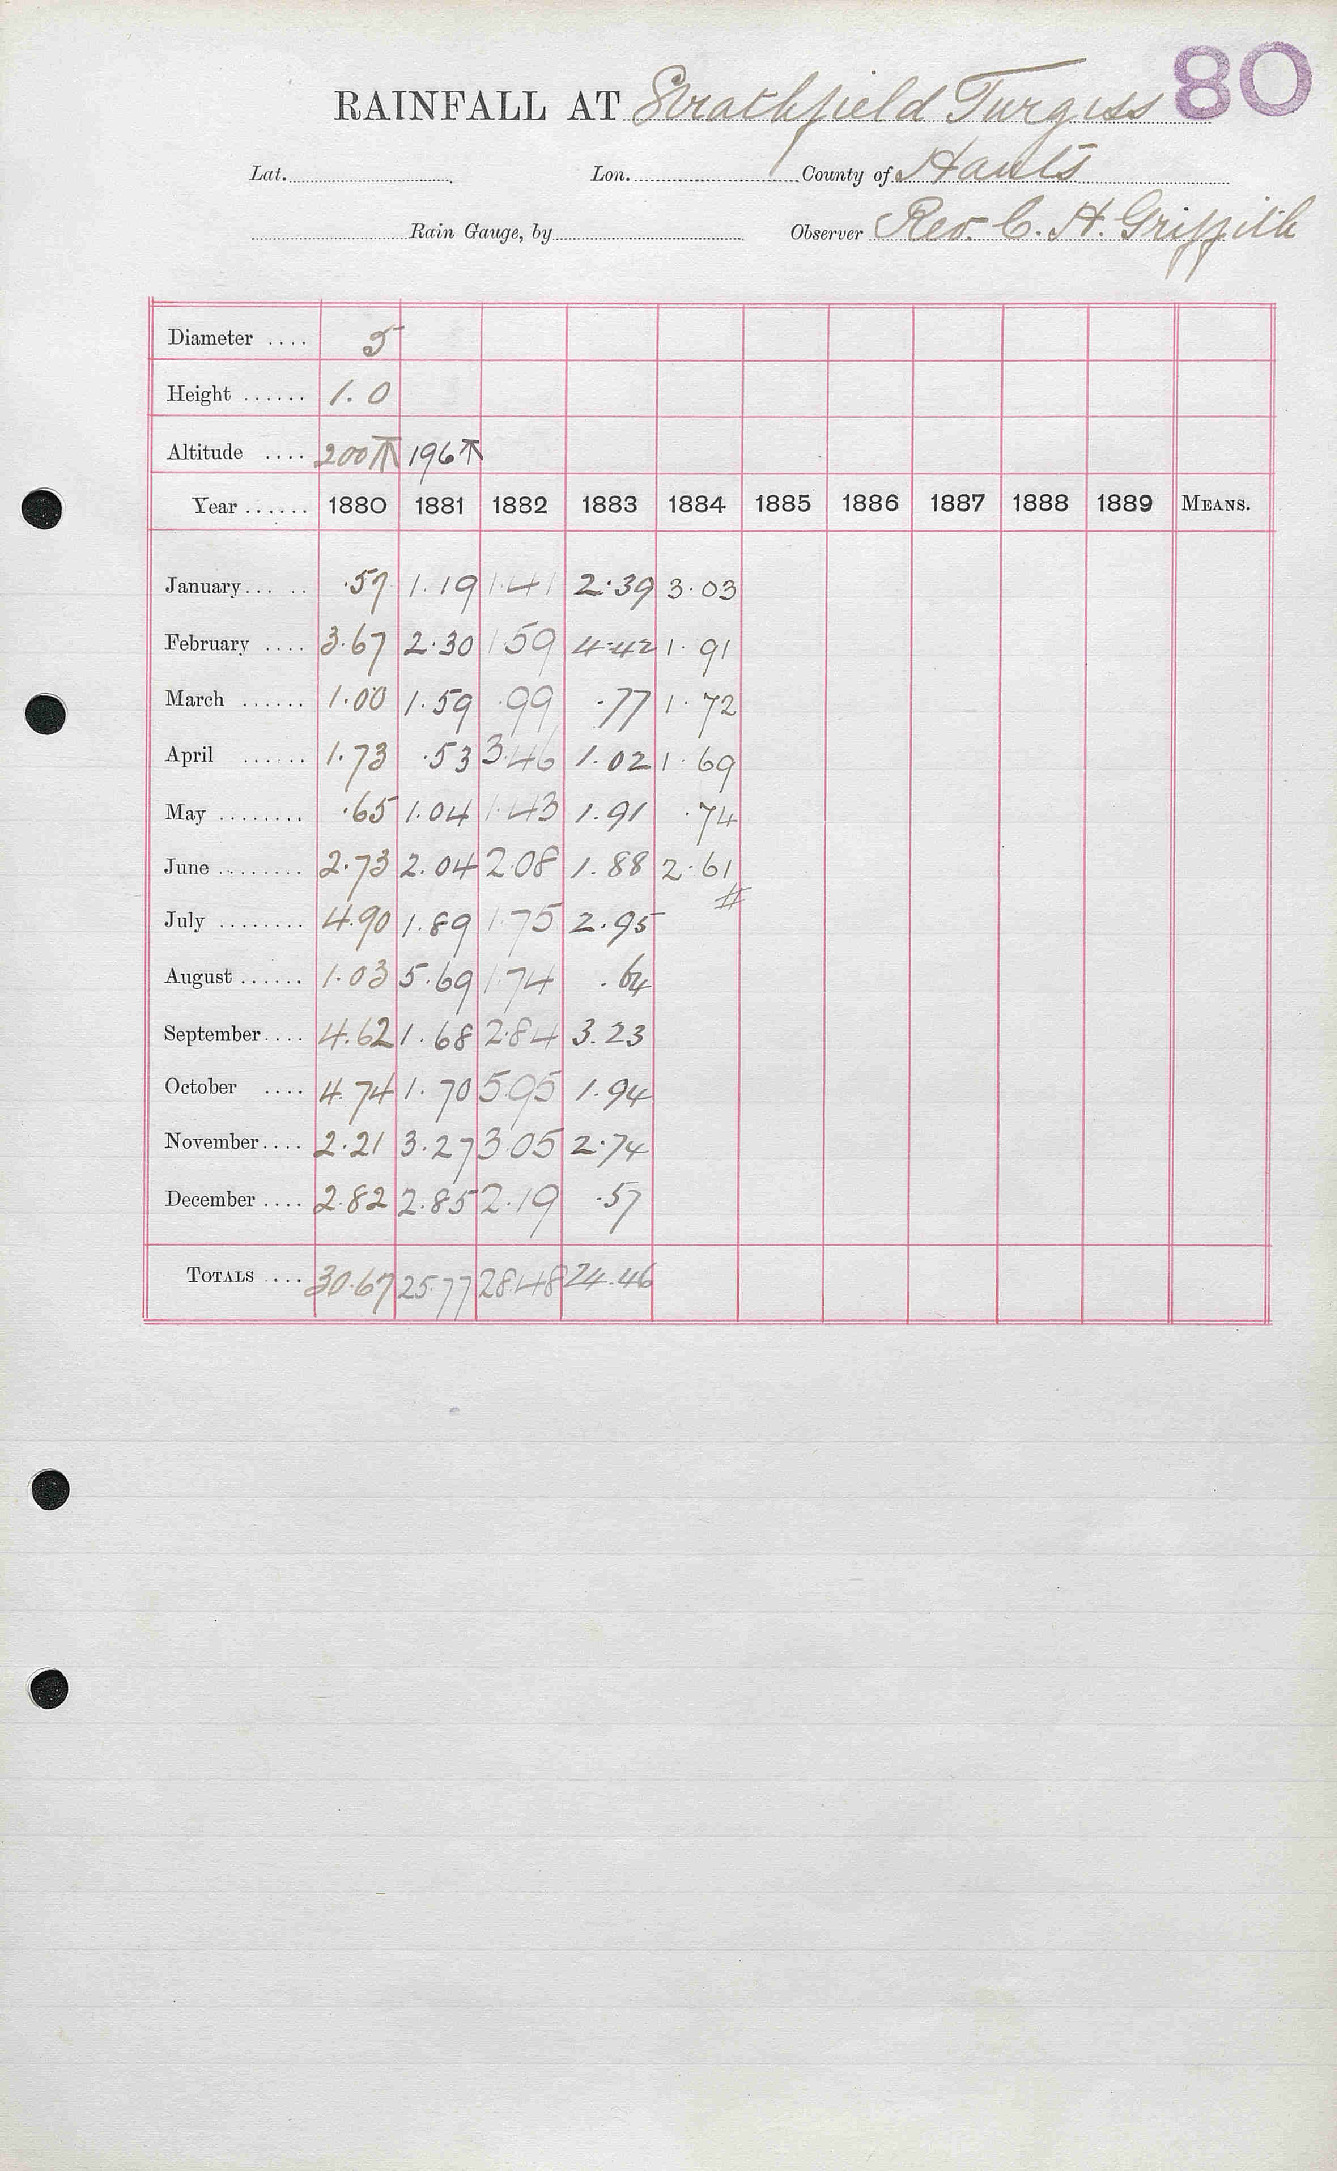 80
RAINFALL AT Strathfield Turgiss
Lat. Lon. County of Hants
Rain Gauge, by Observer Rev. C. H. Griffith
Diameter .... 5
Height ...... 1.0
Altitude .... 200 ⊼ 196 ⊼
Year ...... 1880 1881 1882 1883 1884 1885 1886 1887 1888 1889 MEANS.
January... .. .57 1.19 1.41 2.39 3.03
February .... 3.67 2.30 1.59 4.42 1.91
March ...... 1.00 1.59 .99 .77 1.72
April ...... 1.73 .53 3.46 1.02 1.69
May ........ .65 1.04 1.43 1.91 .74
June ........ 2.73 2.04 2.08 1.88 2.61
#
July ........ 4.90 1.89 1.75 2.95
August ...... 1.03 5.69 1.74 .64
September.... 4.62 1.68 2.84 3.23
October .... 4.74 1.70 5.95 1.94
November.... 2.21 3.27 3.05 2.74
December .... 2.82 2.85 2.19 .57
TOTALS .... 30.67 25.77 28.48 24.46